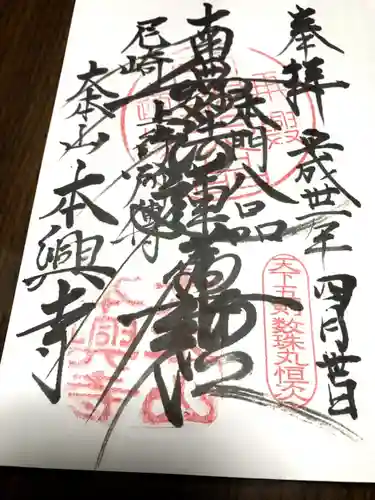 奉拝
平成卅一年
四月廿日
南無妙法蓮華経
本門八品
上行所傳
尼崎
大本山
本興寺
天下五剣数珠丸恒次
本興寺